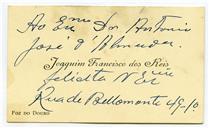 Ao Exmo Snr Antonio
José d'Almeida.
Joaquim Francisco dos Reis
felicita V Exa
Rua de Bellomonte 49-10.
Foz do Douro